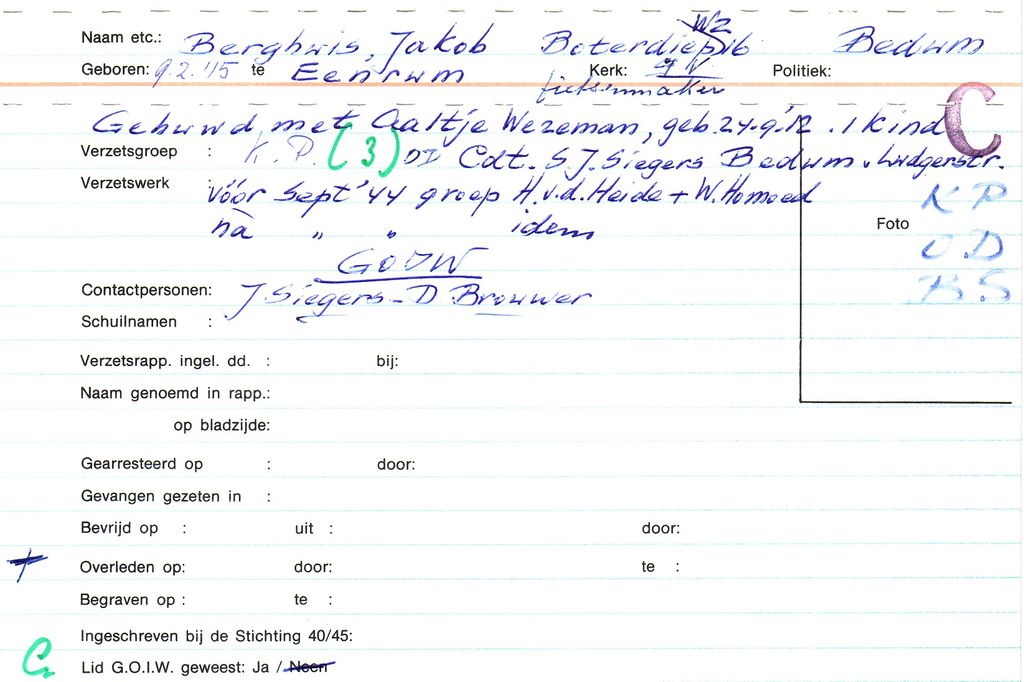 Wz
Naam etc.: Berghuis, Jakob Boterdiep 16 Bedum
Geboren: 9.2.'15 te Eenrum Kerk: Politiek:
fietsenmaker
Gehuwd met Aaltje Wezeman, geb. 24-9-'12. 1 kind C
Verzetsgroep : K.P. (3) OD Cdt. S.J. Siegers Bedum v. Ludgerstr.
Verzetswerk vóór Sept '44 groep H.v.d. Heide + W. Homoed
KP
nà " " idem
Foto
OD
GOIW
BS
Contactpersonen: J Siegers - D Brouwer
Schuilnamen :
Verzetsrapp. ingel. dd. : bij:
Naam genoemd in rapp.:
op bladzijde:
Gearresteerd op : door:
Gevangen gezeten in :
Bevrijd op : uit : door:
+ Overleden op: door: te :
Begraven op : te :
Ingeschreven bij de Stichting 40/45:
C Lid G.O.I.W. geweest: Ja / Neen